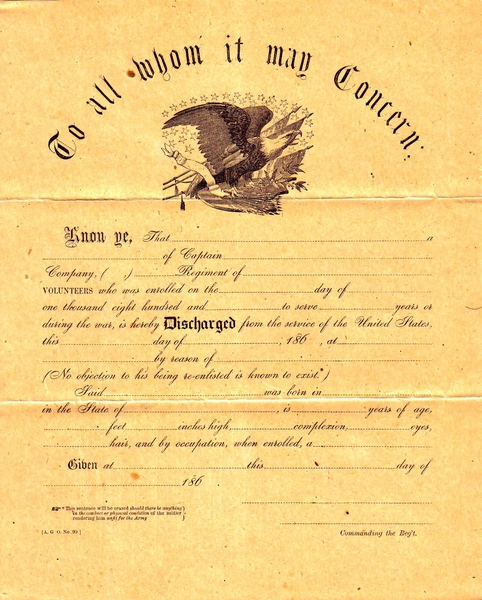 To all whom it may Concern:
Know ye, That a
of Captain
Company, ( ,) Regiment of
VOLUNTEERS who was enrolled on the day of
one thousand eight hundred and to serve years or
during the war, is hereby Discharged from the service of the United States,
this day of , 186 , at
by reason of
(No objection to his being re-enlisted is known to exist.*)
Said was born in
in the State of , is years of age,
feet inches high, complexion, eyes,
hair, and by occupation, when enrolled, a
Given at this day of
186
* This sentence will be erased should there be anything
in the conduct or physical condition of the soldier
rendering him unfit for the Army
[A. G. O. No. 99]
Commanding the Reg't.